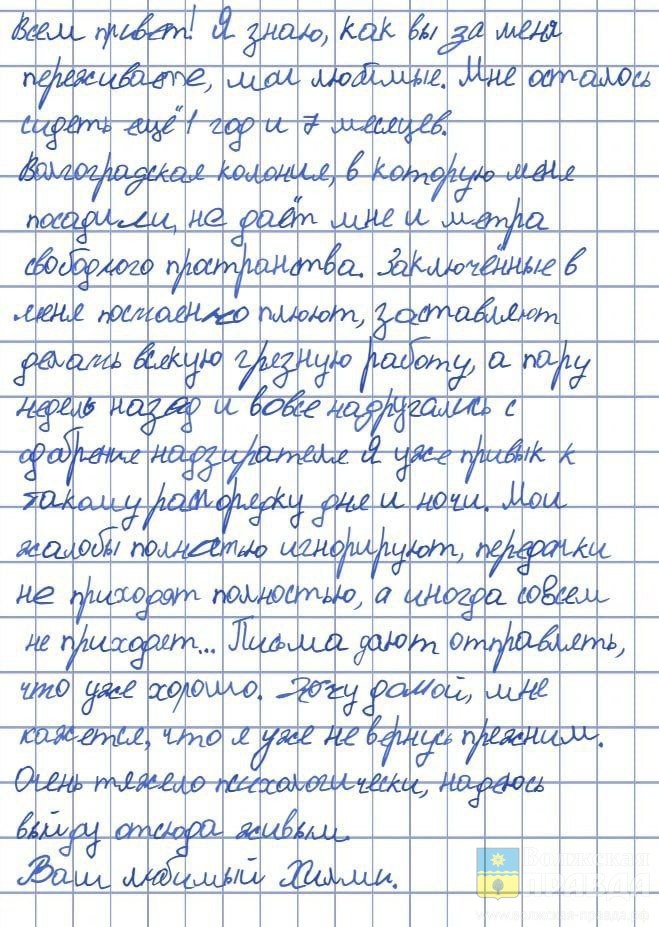 Всем привет! Я знаю, как вы за меня
переживаете, мои любимые. Мне осталось
сидеть ещё 1 год и 7 месяцев.
Волгоградская колония, в которую меня
посадили, не даёт мне и метра
свободного пространства. Заключённые в
меня постоенно плюют, заставляют
делать всякую грезную работу, а пару
недель назад и вовсе надругались с
одабрения надзирателя Я уже привык к
такому распорядку дня и ночи. Мои
жалобы полностью игнорируют, передачки
не приходят полностью, а иногда совсем
не приходят... Письма дают отправлять,
что уже хорошо. Хочу домой, мне
кажется, что я уже не вернусь прежним.
Очень тяжело психологически, надеюсь
выйду отсюда живым.
Ваш любимый Хилми.
Волжская
ПРАВДА
www.волжская-правда.рф